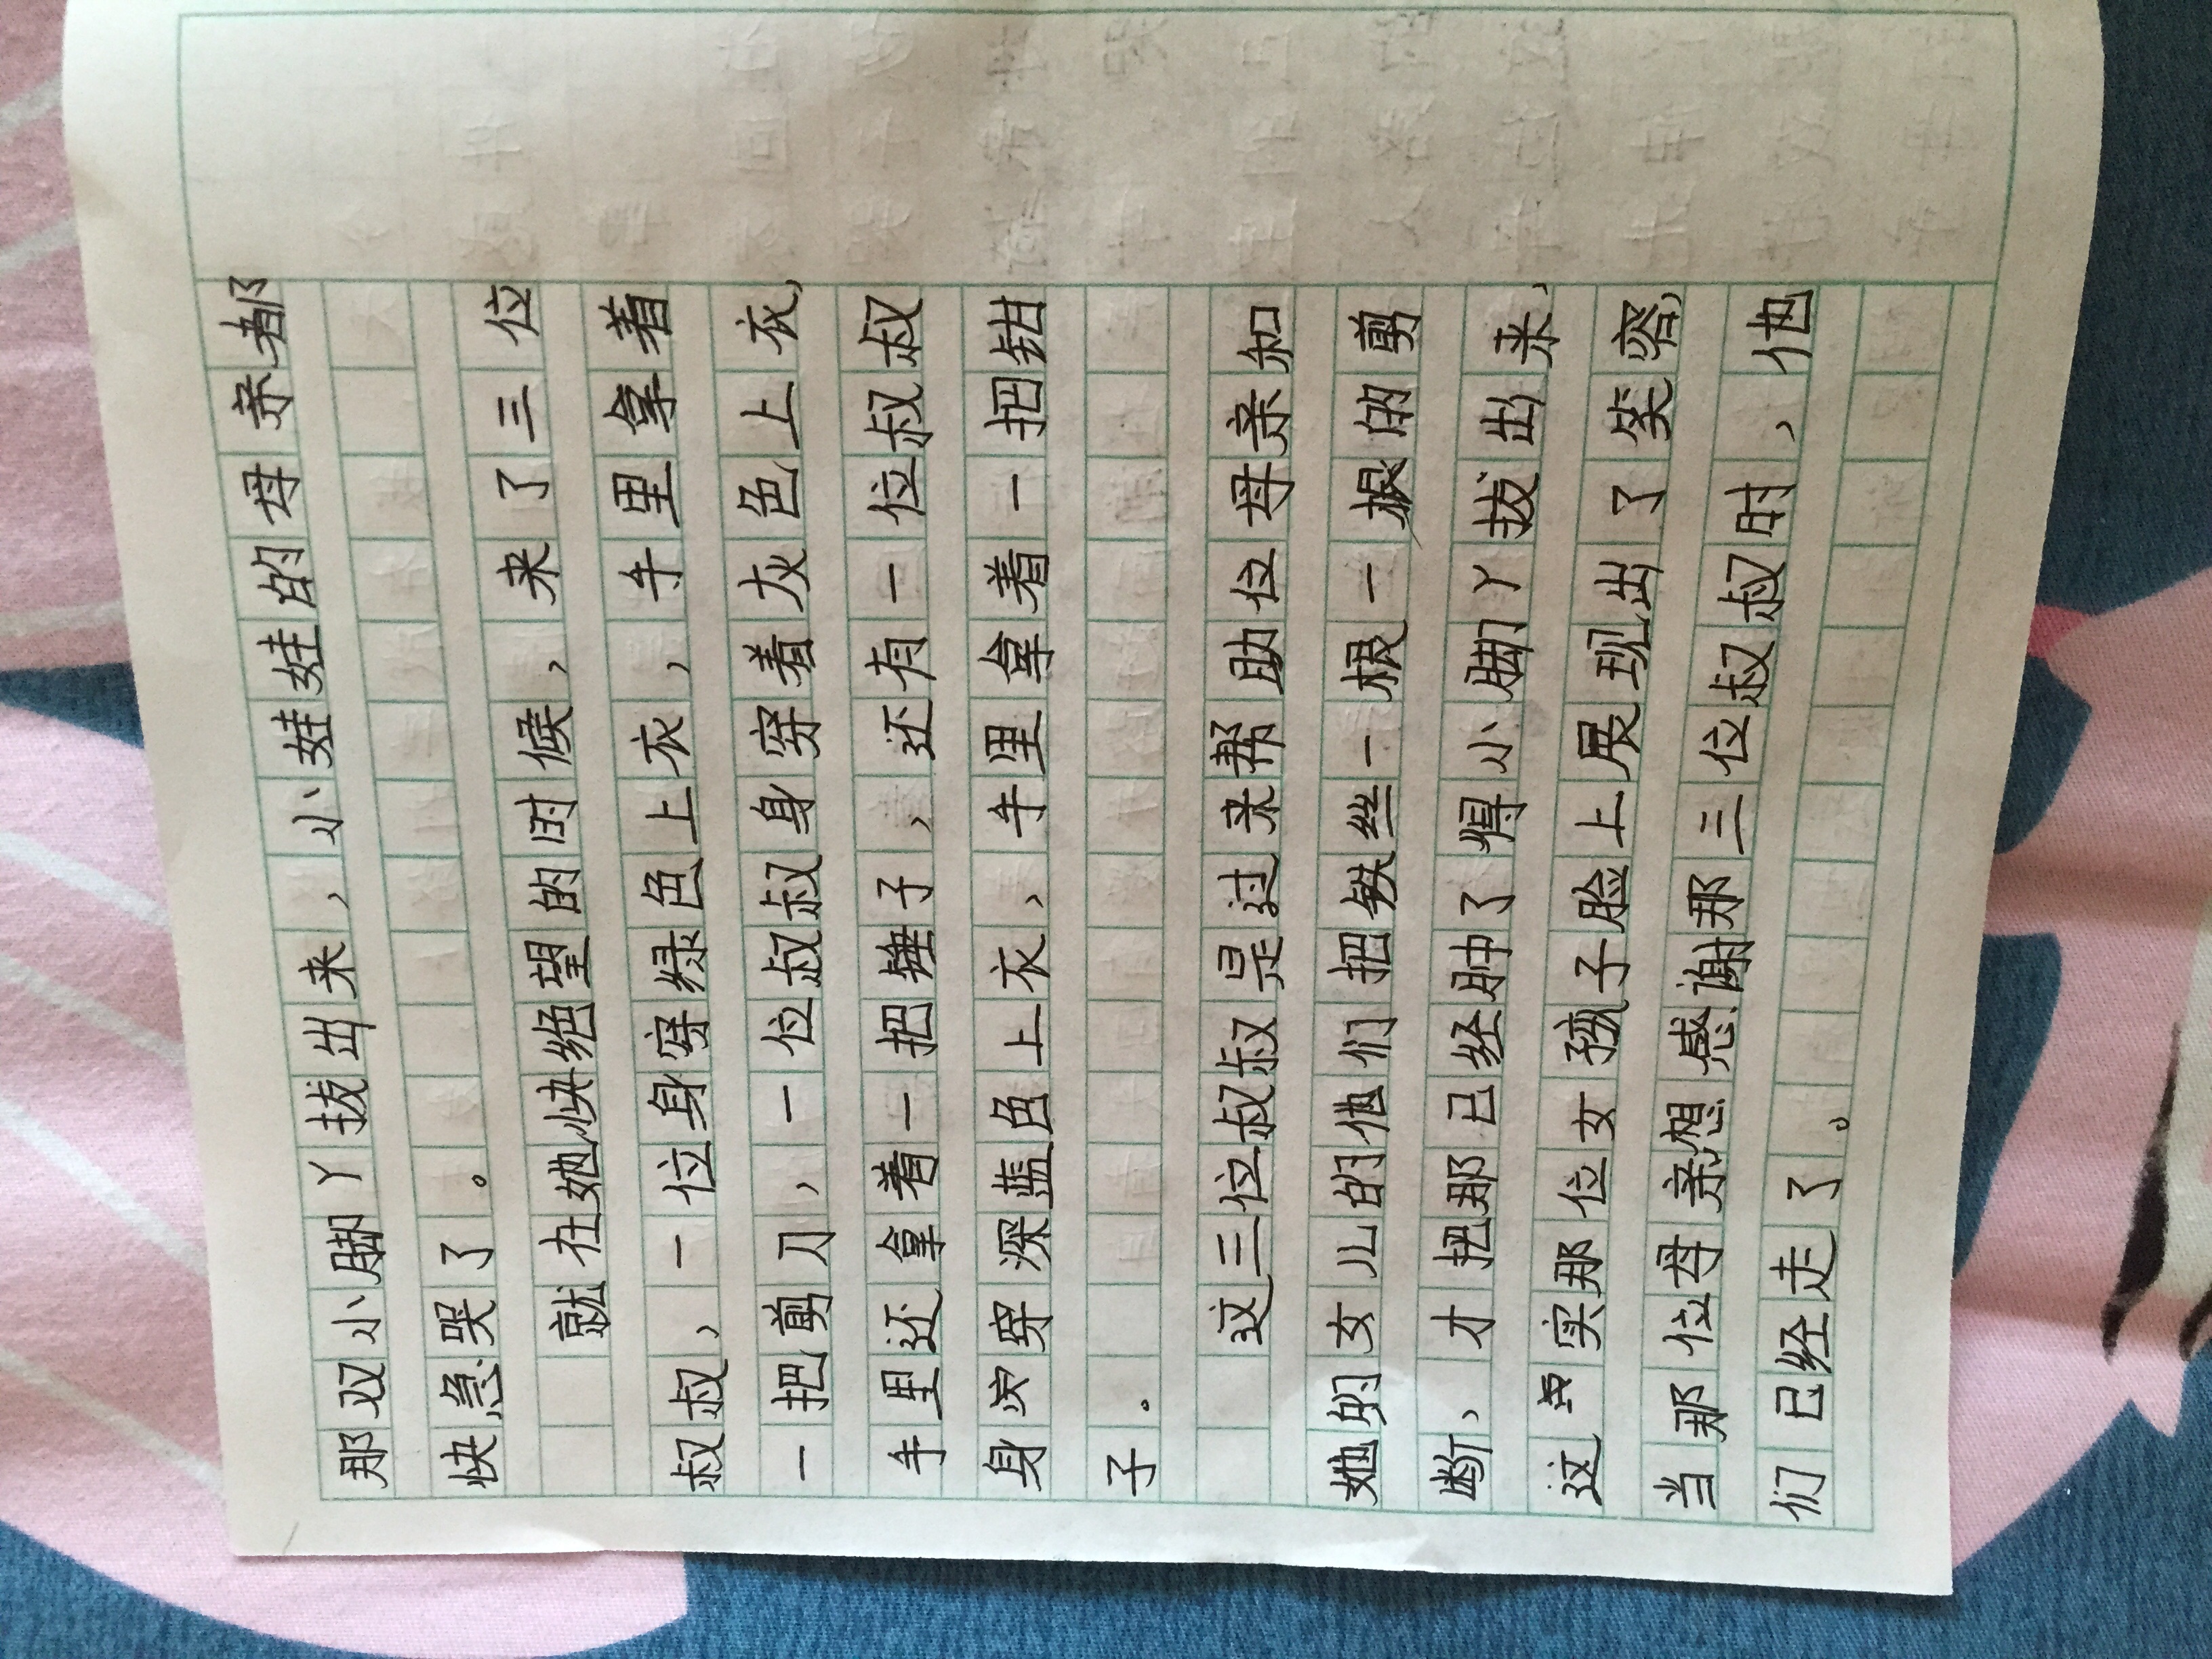 那双小脚丫拔出来，小娃娃的母亲都
快急哭了。
就在她快绝望的时候，来了三位
叔叔，一位身穿绿色上衣，手里拿着
一把剪刀，一位叔叔身穿着灰色上衣，
手里还拿着一把锤子，还有一位叔叔
身穿深蓝色上衣，手里拿着一把钳
子。
这三位叔叔是过来帮助位母亲和
她的女儿的他们把铁丝一根一根的剪
断，才把那已经肿了得小脚丫拔出来，
这实那位女孩子脸上展现出了笑容，
当那位母亲想感谢那三位叔叔时，他
们已经走了。